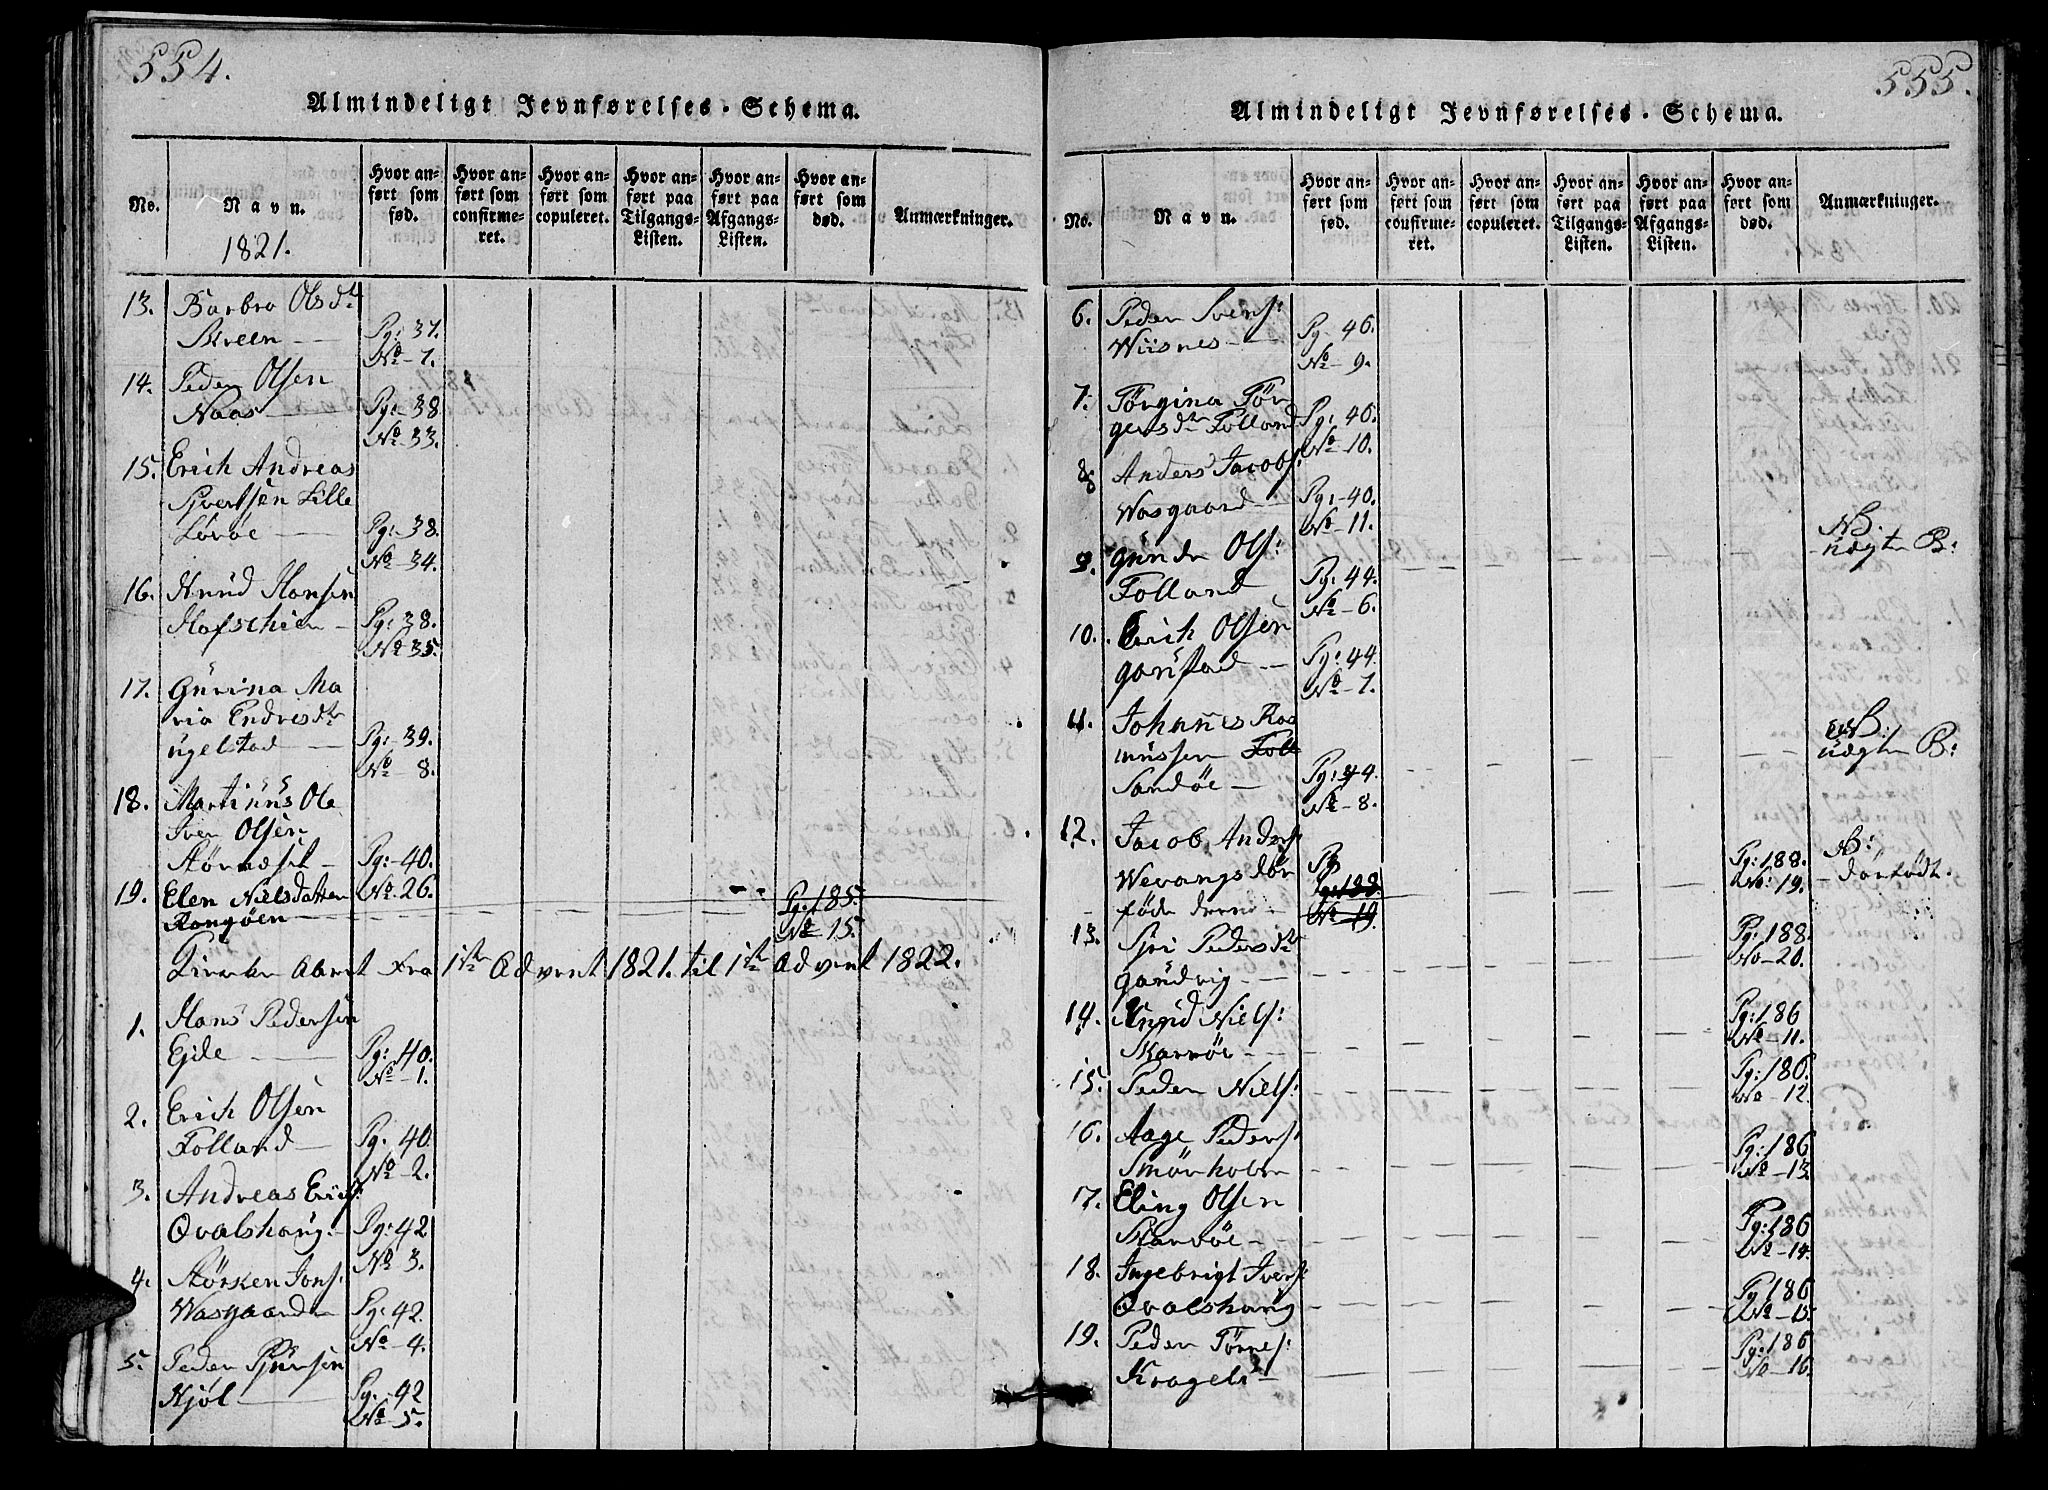 554.
Almindeligt Jevnførelses-Schema.
No.
Navn.
Hvor anført som fød.
Hvor anført som confirmeret.
Hvor anført som copuleret.
Hvor anført paa Tilgangs-Listen.
Hvor anført paa Afgangs-Listen.
Hvor anført som død.
Anmærkninger.
1821.
13. Barbro Olsdtr
Skreen — Pg: 37.
No 7.
14. Peder Olsen
Naas — Pg: 38
No 33.
15. Erich Andreas
Sjvertsen Lille
Löröe — Pg: 38.
No 34.
16. Knud Hansen
Pg: 38.
No 35.
17. Gurina Ma
ria Endresdtr
ugelstad — Pg: 39.
No 8.
18. Martinus Ole
Iver Olsen
Pg: 40.
No 26.
19. Elen Nielsdatter
Rangöen — Pg: 185.
No 15.
Kirke Aaret Fra 1ste Advent 1821. til 1ste Advent 1822.
1. Hans Pedersen
Ejde — Pg: 40.
No 1.
2. Erich Olsen
Folland — Pg. 40
No 2.
3. Andreas Erichs:
Qvalshaug. — Pg: 42
No 3.
4. Störker Jons:
Wasgaarden Pg: 42.
No 4.
5. Peder Sjursen
Njöl — Pg. 42
No 5.
555.
Almindeligt Jevnførelses-Schema.
No.
Navn.
Hvor anført som fød.
Hvor anført som confirmeret.
Hvor anført som copuleret.
Hvor anført paa Tilgangs-Listen.
Hvor anført paa Afgangs-Listen.
Hvor anført som død.
Anmærkninger.
6. Peder Svens:
Wiisnes — Pg 46.
No 9.
7. Törgina Tör
gersdtr Folland Pg: 46.
No 10.
8 Anders Jacobs:
Wasgaard — Pg: 40.
No 11.
NB.
uægte B:
9. Gunder Ols:
Folland Pg: 44.
No 6.
10. Erich Olsen
Garstad — Pg: 44.
No 7.
11. Johannes Ras
mussen Foll
Sandöe — Pg: 44.
No 8.
NB.
uægte B:
12. Jacob Anders
Wevangs död
föde dreng Pg: 188.
No 19.
Pg: 188.
No 19.
NB:
dödfödt.
13. Siri Pedersdtr
Gaudvig — Pg: 188.
No 20.
14. Knud Niels:
Skarvöe — Pg: 186
No 11.
15. Peder Niels: Pg: 186.
No 12.
16. Aage Peders:
Smörholm Pg: 186
No 13
17. Eling Olsen
Skarvöe — Pg: 186
No 14.
18. Ingebrigt Ivers:
Qvalshaug Pg 186
No 15.
19. Peder Törres:
Pg: 186
No 16.